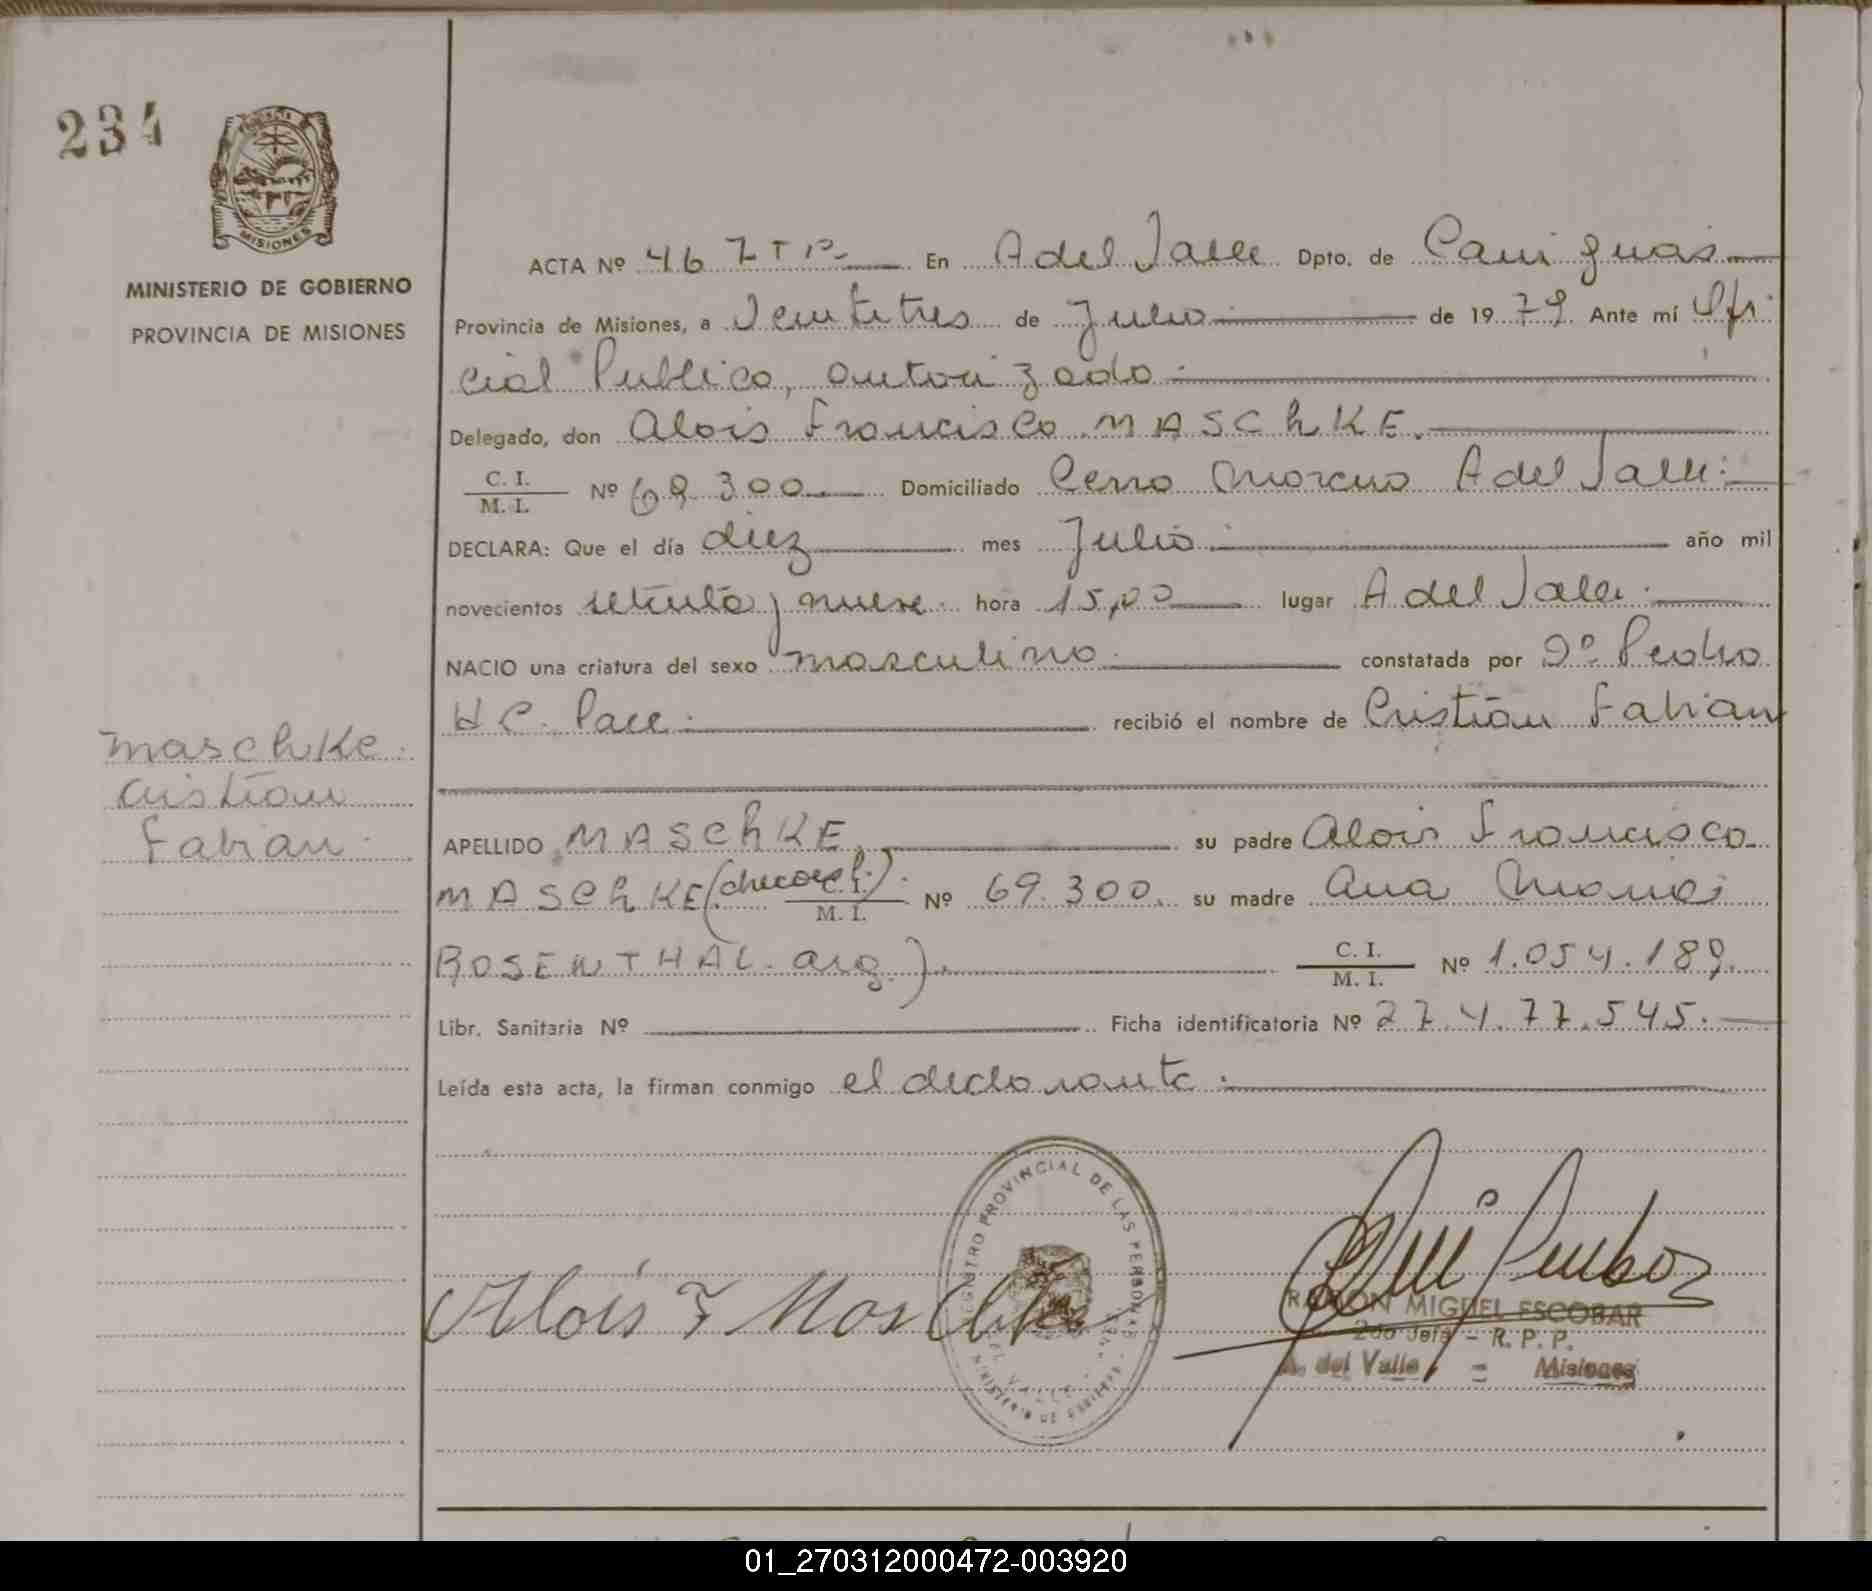 234
MISIONES
MINISTERIO DE GOBIERNO
PROVINCIA DE MISIONES
ACTA Nº 467 Tº Iº En A del Valle Dpto. de Cainguas
Provincia de Misiones, a Veintitres de Julio de 1979 Ante mí Ofi-
cial Publico, autorizado
Delegado, don Alois Francisco MASCHKE.
C. I.
M. I. Nº 69.300 Domiciliado Cerro Moreno A del Valle.
DECLARA: Que el día diez mes Julio año mil
novecientos setenta y nueve hora 15,00 lugar A del Valle.
NACIO una criatura del sexo masculino constatada por Dº Pedro
H C. Pace. recibió el nombre de Cristián Fabian
Maschke.
Cristian
Fabian
APELLIDO MASCHKE, su padre Alois Francisco
MASCHKE (checoesl.). C. I.
M. I. Nº 69.300. su madre Ana Maria
ROSENTHAL. arg.). C. I.
M. I. Nº 1.054.189.
Libr. Sanitaria Nº Ficha identificatoria Nº 27.4.77.545.
Leída esta acta, la firman conmigo el declarante.
REGISTRO PROVINCIAL DE LAS PERSONAS
DEL VALLE
MINISTERIO DE GOBIERNO
Alois F Maschke
RAMON MIGUEL ESCOBAR
2do Jefe - R. P. P.
A. del Valle, = Misiones
01_270312000472-003920